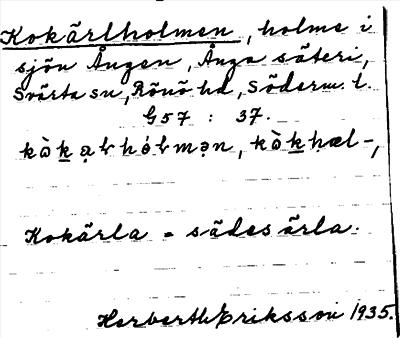 Kokärlholmen, holme i
sjön Ången, Ånga säteri,
Svärta sn, Rönö hd, Söderm. l.
G57 : 37.
kὼk̲ạɫhóɫmən, kὼk̲hæl-,
Kokärla = sädesärla.
Herberth Eriksson 1935.